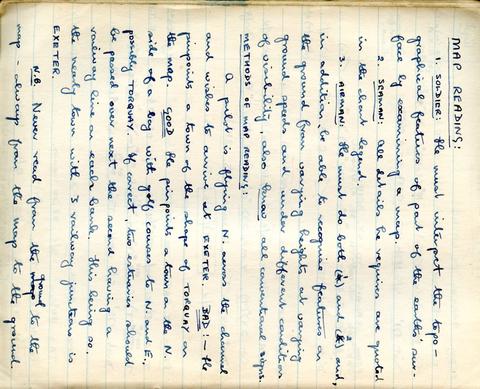 MAP READING:
1. SOLDIER: He must interpret the topo-
graphical features of part of the earth's sur-
face by examining a map.
2. SEAMAN: All details he requires are quoted
in the chart legend.
3. AIRMAN: He must do both (1) and (2) and,
in addition, be able to recognise features on
the ground from varying heights at varying
ground speeds and under different condition
of visibility, also know all conventional signs.
METHODS OF MAP READING:
A pilot is flying N. across the channel
and wishes to arrive at EXETER. BAD:- He
pinpoints a town of the shape of TORQUAY on
the map. GOOD He pin-points a town on the N.
side of a bay with golf courses to N. and E,
possibly TORQUAY. If correct, two estuaries should
be passed over next the second having a
railway line on each bank. This being so,
the nearby town with 3 railway junctions is
EXETER.
N.B. Never read from the ground to the
map - always from the map to the ground